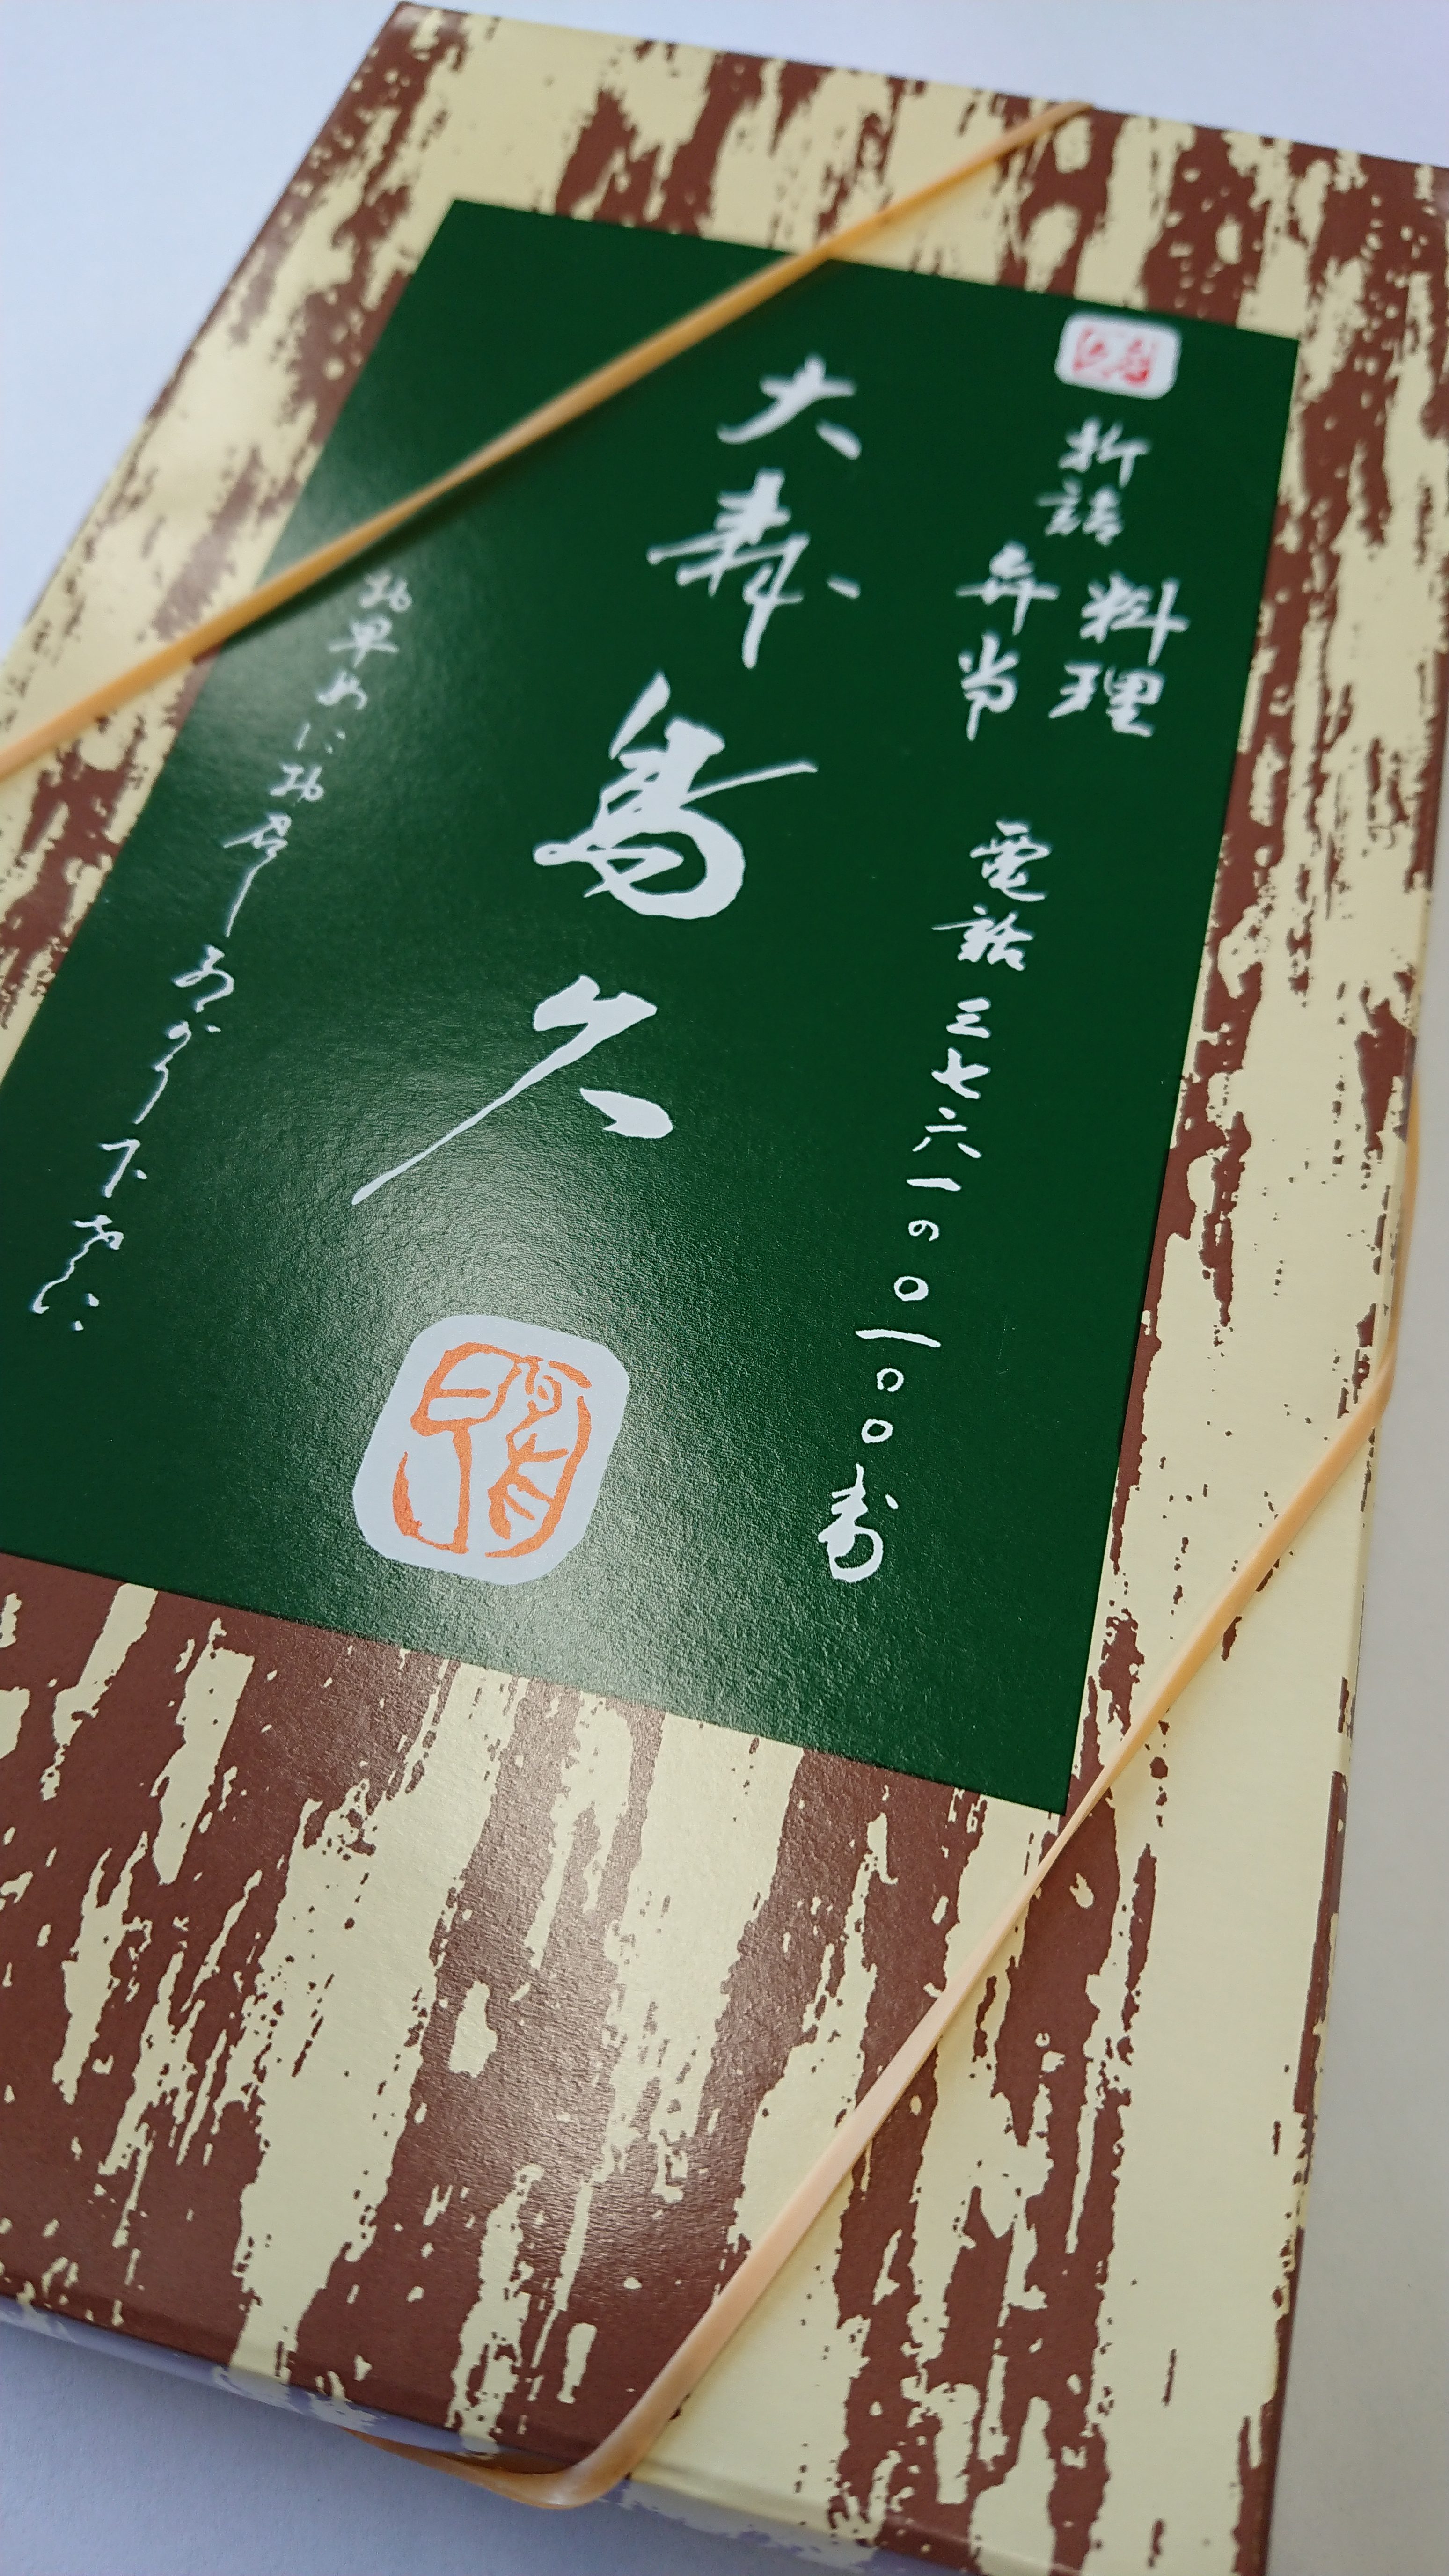 折詰
料理
弁当
電話 三七六一の〇一〇〇番
大森 鳥久
お早めにお召しあがり下さい